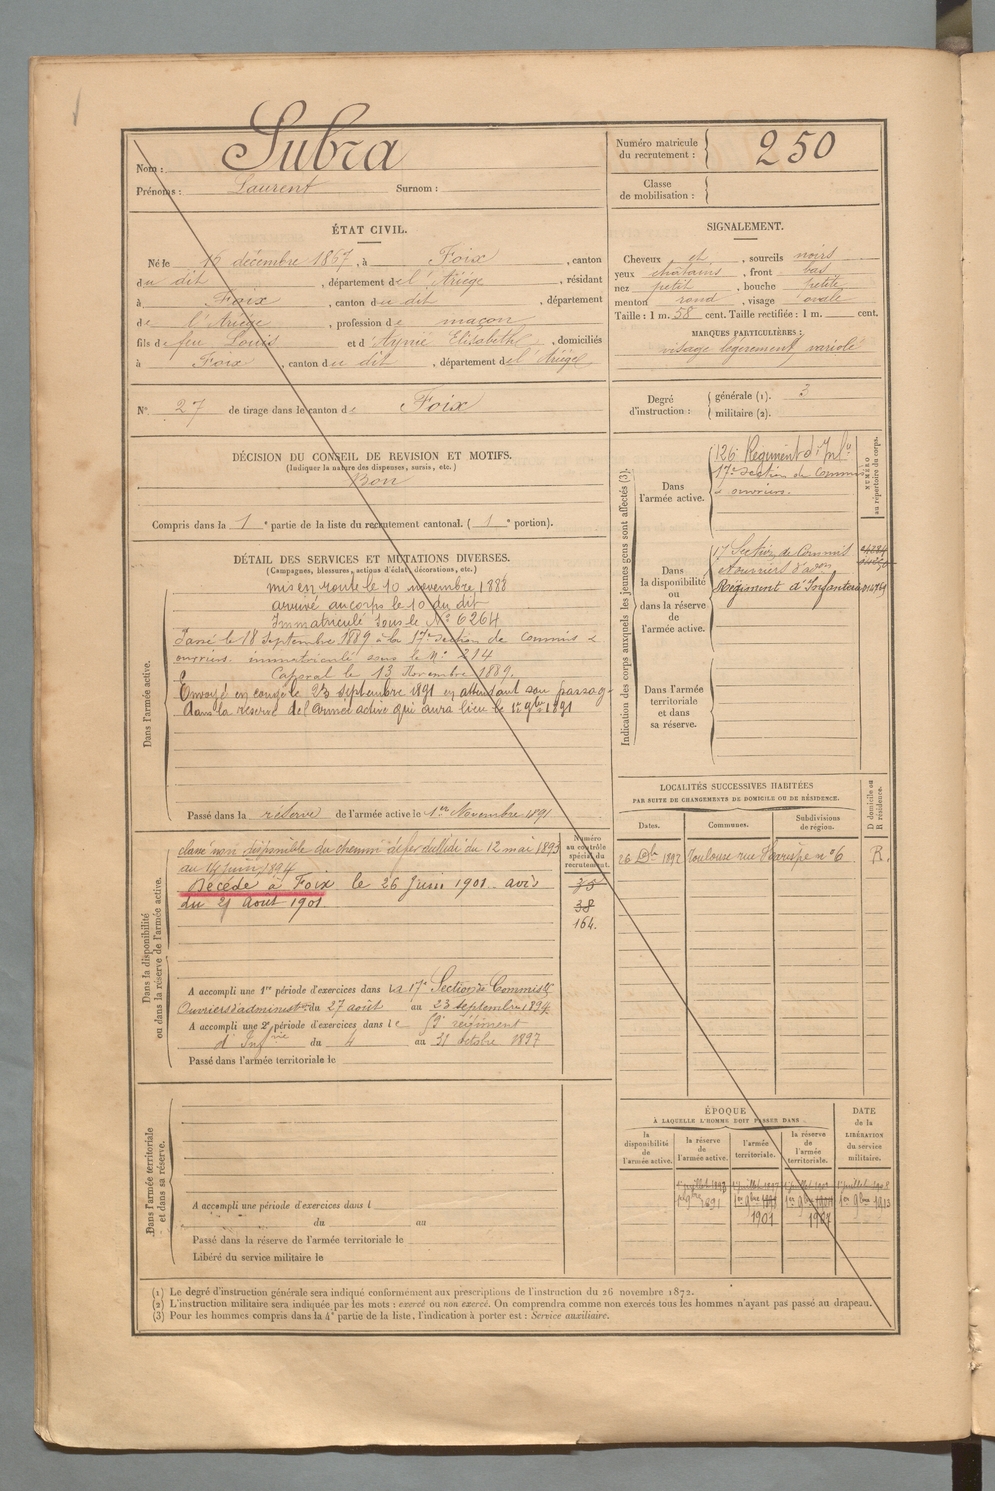 Nom : Subra
Prénoms : Laurent Surnom :
Numéro matricule du recrutement : 250
Classe de mobilisation :
ÉTAT CIVIL.
Né le 16 décembre 1867, à Foix, canton
du dit, département de l'Ariège, résidant
à Foix, canton du dit, département
de l'Ariège, profession de maçon
fils de feu Louis et d'Aynié Elisabeth, domiciliés
à Foix, canton du dit, département de l'Ariège
N° 27 de tirage dans le canton de Foix
SIGNALEMENT.
Cheveux et, sourcils noirs
yeux châtains, front bas
nez petit, bouche petite
menton rond, visage ovale
Taille : 1 m. 58 cent. Taille rectifiée : 1 m. cent.
MARQUES PARTICULIÈRES :
visage légèrement variolé
Degré d'instruction : générale (1). 3
militaire (2).
DÉCISION DU CONSEIL DE REVISION ET MOTIFS.
(Indiquer la nature des dispenses, sursis, etc.)
Bon
Compris dans la 1e partie de la liste du recrutement cantonal. (1e portion).
DÉTAIL DES SERVICES ET MUTATIONS DIVERSES.
(Campagnes, blessures, actions d'éclat, décorations, etc.)
Dans l'armée active.
mis en route le 10 novembre 1888
arrivé au corps le 10 du dit
Immatriculé sous le N° 6264
Passé le 18 Septembre 1889 à la 17e section de commis &
ouvriers immatriculé sous le N° 214
Caporal le 13 Novembre 1889.
Envoyé en congé le 23 septembre 1891 en attendant son passage
dans la réserve de l'armée active qui aura lieu le 1er 9bre 1891
Passé dans la réserve de l'armée active le 1er Novembre 1891
Indication des corps auxquels les jeunes gens sont affectés (3).
NUMÉRO au répertoire du corps.
Dans l'armée active.
126e Régiment d'Infie
17e section de Commis
& ouvriers.
Dans la disponibilité ou dans la réserve de l'armée active.
17e Section de Commis
et ouvriers d'adon
Régiment d'Infanterie
Dans l'armée territoriale et dans sa réserve.
LOCALITÉS SUCCESSIVES HABITÉES
PAR SUITE DE CHANGEMENTS DE DOMICILE OU DE RÉSIDENCE.
Dates. Communes. Subdivisions de région. D domicile ou R résidence.
1892 Toulouse rue n° 6 R.
Dans la disponibilité ou dans la réserve de l'armée active.
Numéro au contrôle spécial du recrutement.
classé non disponible du chemin de fer du Midi du 12 mai 1893
au 14 juin 1894
Décédé à Foix le 26 Juin 1901 avis
du 21 Août 1901
36
38
164.
A accompli une 1re période d'exercices dans la 17e Section de Commis &
Ouvriers d'administon du 27 août au 23 septembre 1894.
A accompli une 2e période d'exercices dans le régiment
d'Infrie du 4 au 31 octobre 1897
Passé dans l'armée territoriale le
ÉPOQUE
À LAQUELLE L'HOMME DOIT PASSER DANS
la disponibilité de l'armée active. la réserve de l'armée active. l'armée territoriale. la réserve de l'armée territoriale.
DATE de la LIBÉRATION du service militaire.
1er juillet 1897 1er juillet 1908
1er 9bre 1891 1er 9bre 1er 9bre 1er 9bre 1913
1901 1907
Dans l'armée territoriale et dans sa réserve.
A accompli une période d'exercices dans l
du au
Passé dans la réserve de l'armée territoriale le
Libéré du service militaire le
(1) Le degré d'instruction générale sera indiqué conformément aux prescriptions de l'instruction du 26 novembre 1872.
(2) L'instruction militaire sera indiquée par les mots : exercé ou non exercé. On comprendra comme non exercés tous les hommes n'ayant pas passé au drapeau.
(3) Pour les hommes compris dans la 4e partie de la liste, l'indication à porter est : Service auxiliaire.